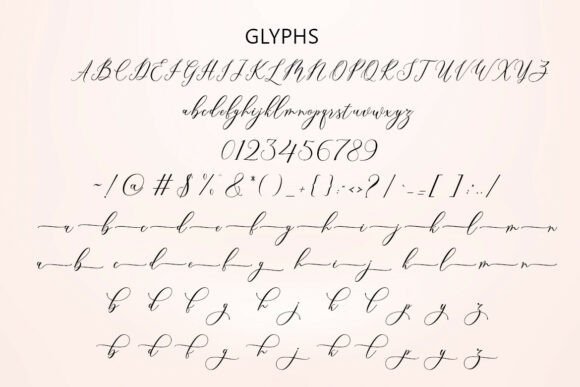 GLYPHS
ABCDEFGHIJKLMNOPQRSTUVWXYZ
abcdefghijklmnopqrstuvwxyz
0123456789
~!@#$%^&*()_+{}:<>?/`-=[];../
a b c d e f g h i j k l m n
a b c d e f g h i j k l m n
b d f g h j k l p y z
b d f g h j k l p y z